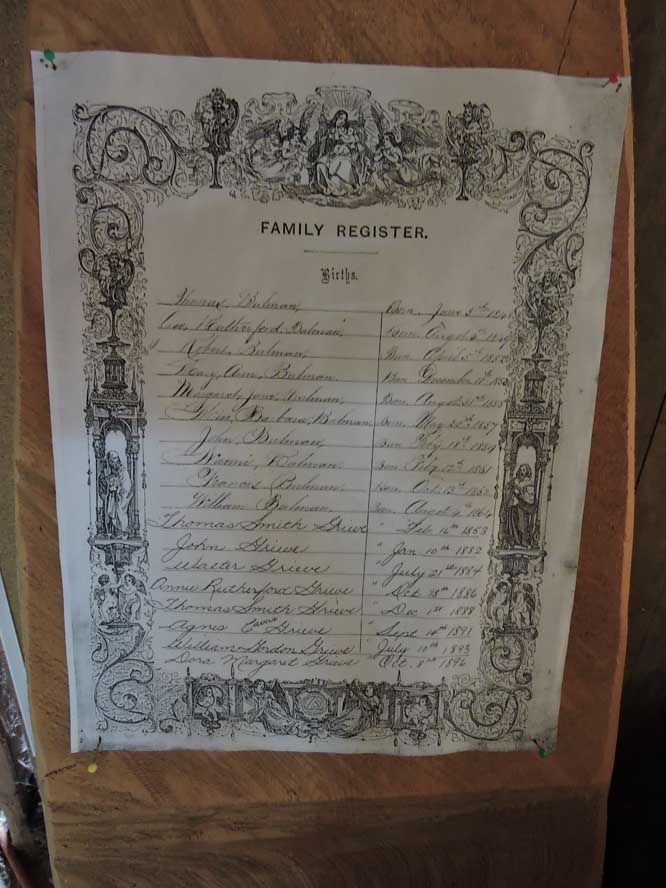 FAMILY REGISTER.
Births.
Thomas, Bulman, Born. June 5th
Geo, Rutherford, Bulman, Born. August 6th
Robert, Bulman, Born April 5th 1852
Mary, Ann, Bulman. Born December 11th 1853
Margaret, Jane, Bulman. Born. August 31st 1855
Barbara, Bulman Born. May 1857
John, Bulman, Born Feby 18th 1859
Naomi, Bulman, Born Feby. 12th 1861
Francis Bulman, Born. Oct. 13th 1862
William Bulman, Born August 9th 1864
Thomas Smith Grieve " Feb 16th 1853
John Grieve " Jan 10th 1882
Walter Grieve " July 21st 1884
Annie Rutherford Grieve " Oct 28th 1886
Thomas Smith Grieve " Dec 1st 1888
Agnes Grieve " Sept 14th 1891
William Gordon Grieve " July 10th 1893
Dora Margaret Grieve " Oct. 8th 1896